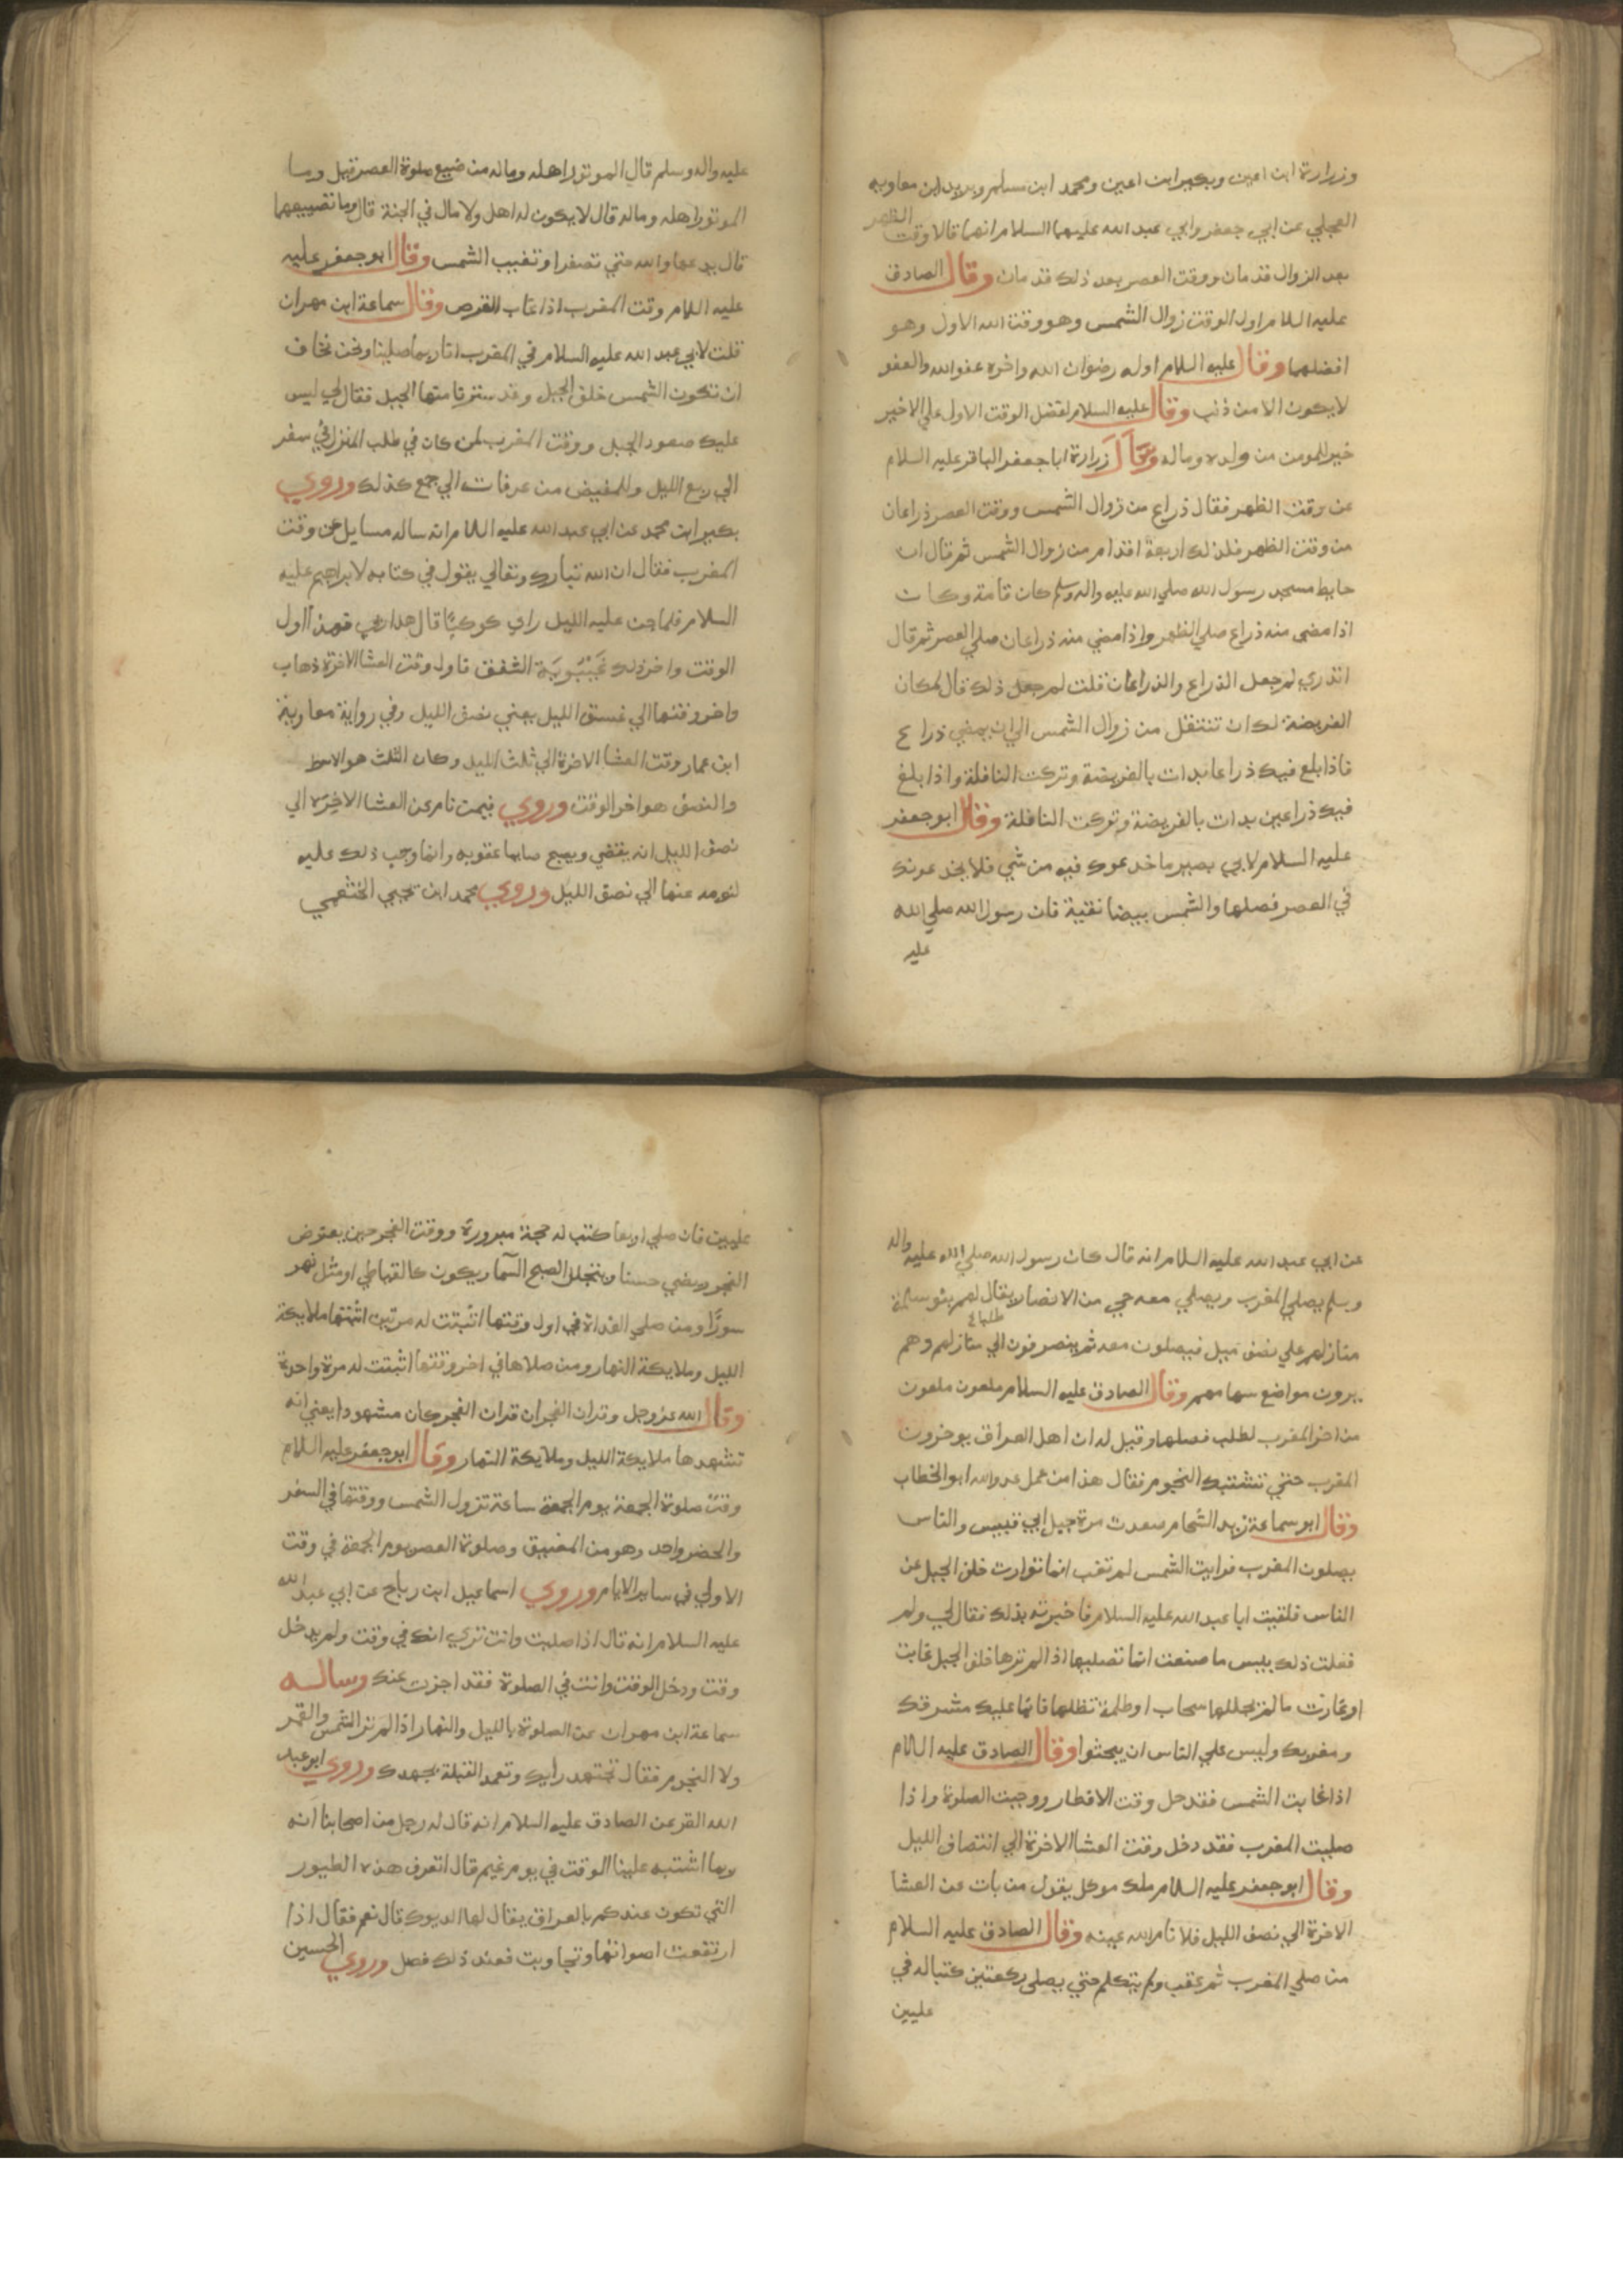 وزرارة ابن اعين وبكير ابن اعين ومحمد ابن مسلم وبريد ابن معاويه
العجلي عن ابي جعفر وابي عبد الله عليهما السلام انهما قالا وقت الظهر
بعد الزوال قدمان ووقت العصر بعد ذلك قدمان وقال الصادق
عليه السلام اول الوقت زوال الشمس وهو وقت الله الاول وهو
افضلهما وقال عليه السلام اوله رضوان الله واخره عفو الله والعفو
لا يكون الا من ذنب وقال عليه السلام لفضل الوقت الاول علي الاخير
خير للمومن من ولده وماله وسال زرارة ابا جعفر الباقر عليه السلام
عن وقت الظهر فقال ذراع من زوال الشمس ووقت العصر ذراعان
من وقت الظهر فلذلك اربعة اقدام من زوال الشمس ثم قال ان
حايط مسجد رسول الله صلي الله عليه واله وسلم كان قامة وكان
اذا مضي منه ذراع صلي الظهر واذا مضي منه ذراعان صلي العصر ثم قال
اتدري لم جعل الذراع والذراعان قلت لم جعل ذلك قال لمكان
الفريضة لك ان تنتفل من زوال الشمس الي ان يمضي ذراع
فاذا بلغ فيك ذراعا بدات بالفريضة وتركت النافلة واذا بلغ
فيك ذراعين بدات بالفريضة وتركت النافلة وقال ابو جعفر
عليه السلام لابي بصير ما خدعوك فيه من شي فلا يخدعونك
في العصر فصلها والشمس بيضا نقية فان رسول الله صلي الله
عليه
عليه واله وسلم قال الموتور اهله وماله من ضيع صلوة العصر قيل وما
الموتور اهله وماله قال لا يكون له اهل ولا مال في الجنة قال وما تضييعها
قال يدعها والله حتي تصفرا وتغيب الشمس وقال ابو جعفر عليه
عليه السلام وقت المغرب اذا غاب القرص وقال سماعة ابن مهران
قلت لابي عبد الله عليه السلام في المغرب انا ربما صلينا ونحن نخاف
ان تكون الشمس خلف الجبل وقد سترنا منها الجبل فقال لي ليس
عليك صعود الجبل ووقت المغرب لمن كان في طلب المنزل في سفر
الي ربع الليل وللمفيض من عرفات الي جمع كذلك وروي
بكير ابن محمد عن ابي عبد الله عليه السلام انه ساله مسايل عن وقت
المغرب فقال ان الله تبارك وتعالي يقول في كتابه لابراهيم عليه
السلام فلما جن عليه الليل راي كوكبا قال هذا ربي فهذا اول
الوقت واخر ذلك غيبوبة الشفق فاول وقت العشا الاخرة ذهاب
واخر وقتها الي غسق الليل يعني نصف الليل وفي رواية معاوية
ابن عمار وقت العشا الاخرة الي ثلث الليل وكان الثلث هو الاوسط
والنصف هو اخر الوقت وروي فيمن نام عن العشا الاخره الي
نصف الليل انه يقضي ويصبح صايما عقوبه وانما وجب ذلك عليه
لنومه عنها الي نصف الليل وروي محمد ابن يحيي الخثعمي
عن ابي عبد الله عليه السلام انه قال كان رسول الله صلي الله عليه واله
وسلم يصلي المغرب ويصلي معه حي من الانصار يقال لهم بنو سلمة
منازلهم علي نصف ميل فيصلون معه ثم ينصرفون الي منازلهم وهم
يرون مواضع سهامهم وقال الصادق عليه السلام ملعون ملعون
من اخر المغرب لطلب فضلها وقيل له ان اهل العراق يوخرون
المغرب حتي تشتبك النجوم فقال هذا من عمل عدو الله ابو الخطاب
وقال ابو سماعة زيد الشحام صعدت مرة جبل ابي قبيس والناس
يصلون المغرب فرايت الشمس لم تغب انما توارت خلف الجبل عن
الناس فلقيت ابا عبد الله عليه السلام فاخبرته بذلك فقال لي ولم
فعلت ذلك بيس ما صنعت انما تصليها اذا لم ترها خلف الجبل غابت
او غارت ما لم يتجللها سحاب او ظلمة تظلها فانما عليك مشرقك
ومغربك وليس علي الناس ان يبحثوا وقال الصادق عليه السلام
اذا غابت الشمس فقد حل وقت الافطار ووجبت الصلوة واذا
صليت المغرب فقد دخل وقت العشا الاخرة الي انتصاف الليل
وقال ابو جعفر عليه السلام ملك موكل يقول من بات عن العشا
الاخرة الي نصف الليل فلا نام الله عينه وقال الصادق عليه السلام
من صلي المغرب ثم عقب ولم يتكلم حتي يصلي ركعتين كتبا له في
عليين
عليين فان صلي اربعا كتب له حجة مبرورة ووقت الفجر حين يعترض
الفجر ويضي حسنا ويتجلل الصبح السما ويكون كالقباطي او مثل نهر
سورا ومن صلي الغداة في اول وقتها اثبتت له مرتين اثبتها ملايكة
الليل وملايكة النهار ومن صلاها في اخر وقتها اثبتت له مرة واحدة
وقال الله عز وجل وقران الفجر ان قران الفجر كان مشهودا يعني انه
تشهدها ملايكة الليل وملايكة النهار وقال ابو جعفر عليه السلام
وقت صلوة الجمعة يوم الجمعة ساعة تزول الشمس ووقتها في السفر
والحضر واحد وهو من المضيق وصلوة العصر يوم الجمعة في وقت
الاولي في ساير الايام وروي اسماعيل ابن رباح عن ابي عبد الله
عليه السلام انه قال اذا صليت وانت تري انك في وقت ولم يدخل
وقت ودخل الوقت وانت في الصلوة فقد اجزت عنك وساله
سماعة ابن مهران عن الصلوة بالليل والنهار اذا لم تر الشمس والقمر
ولا النجوم فقال تجتهد رايك وتعمد القبلة بجهدك وروي ابو عبد
الله الفر عن الصادق عليه السلام انه قال له رجل من اصحابنا انه
ربما اشتبه علينا الوقت في يوم غيم قال اتعرف هذه الطيور
التي تكون عندكم بالعراق يقال لها الديوك قال نعم فقال اذا
ارتفعت اصواتها وتجاوبت فعند ذلك فصل وروي الحسين